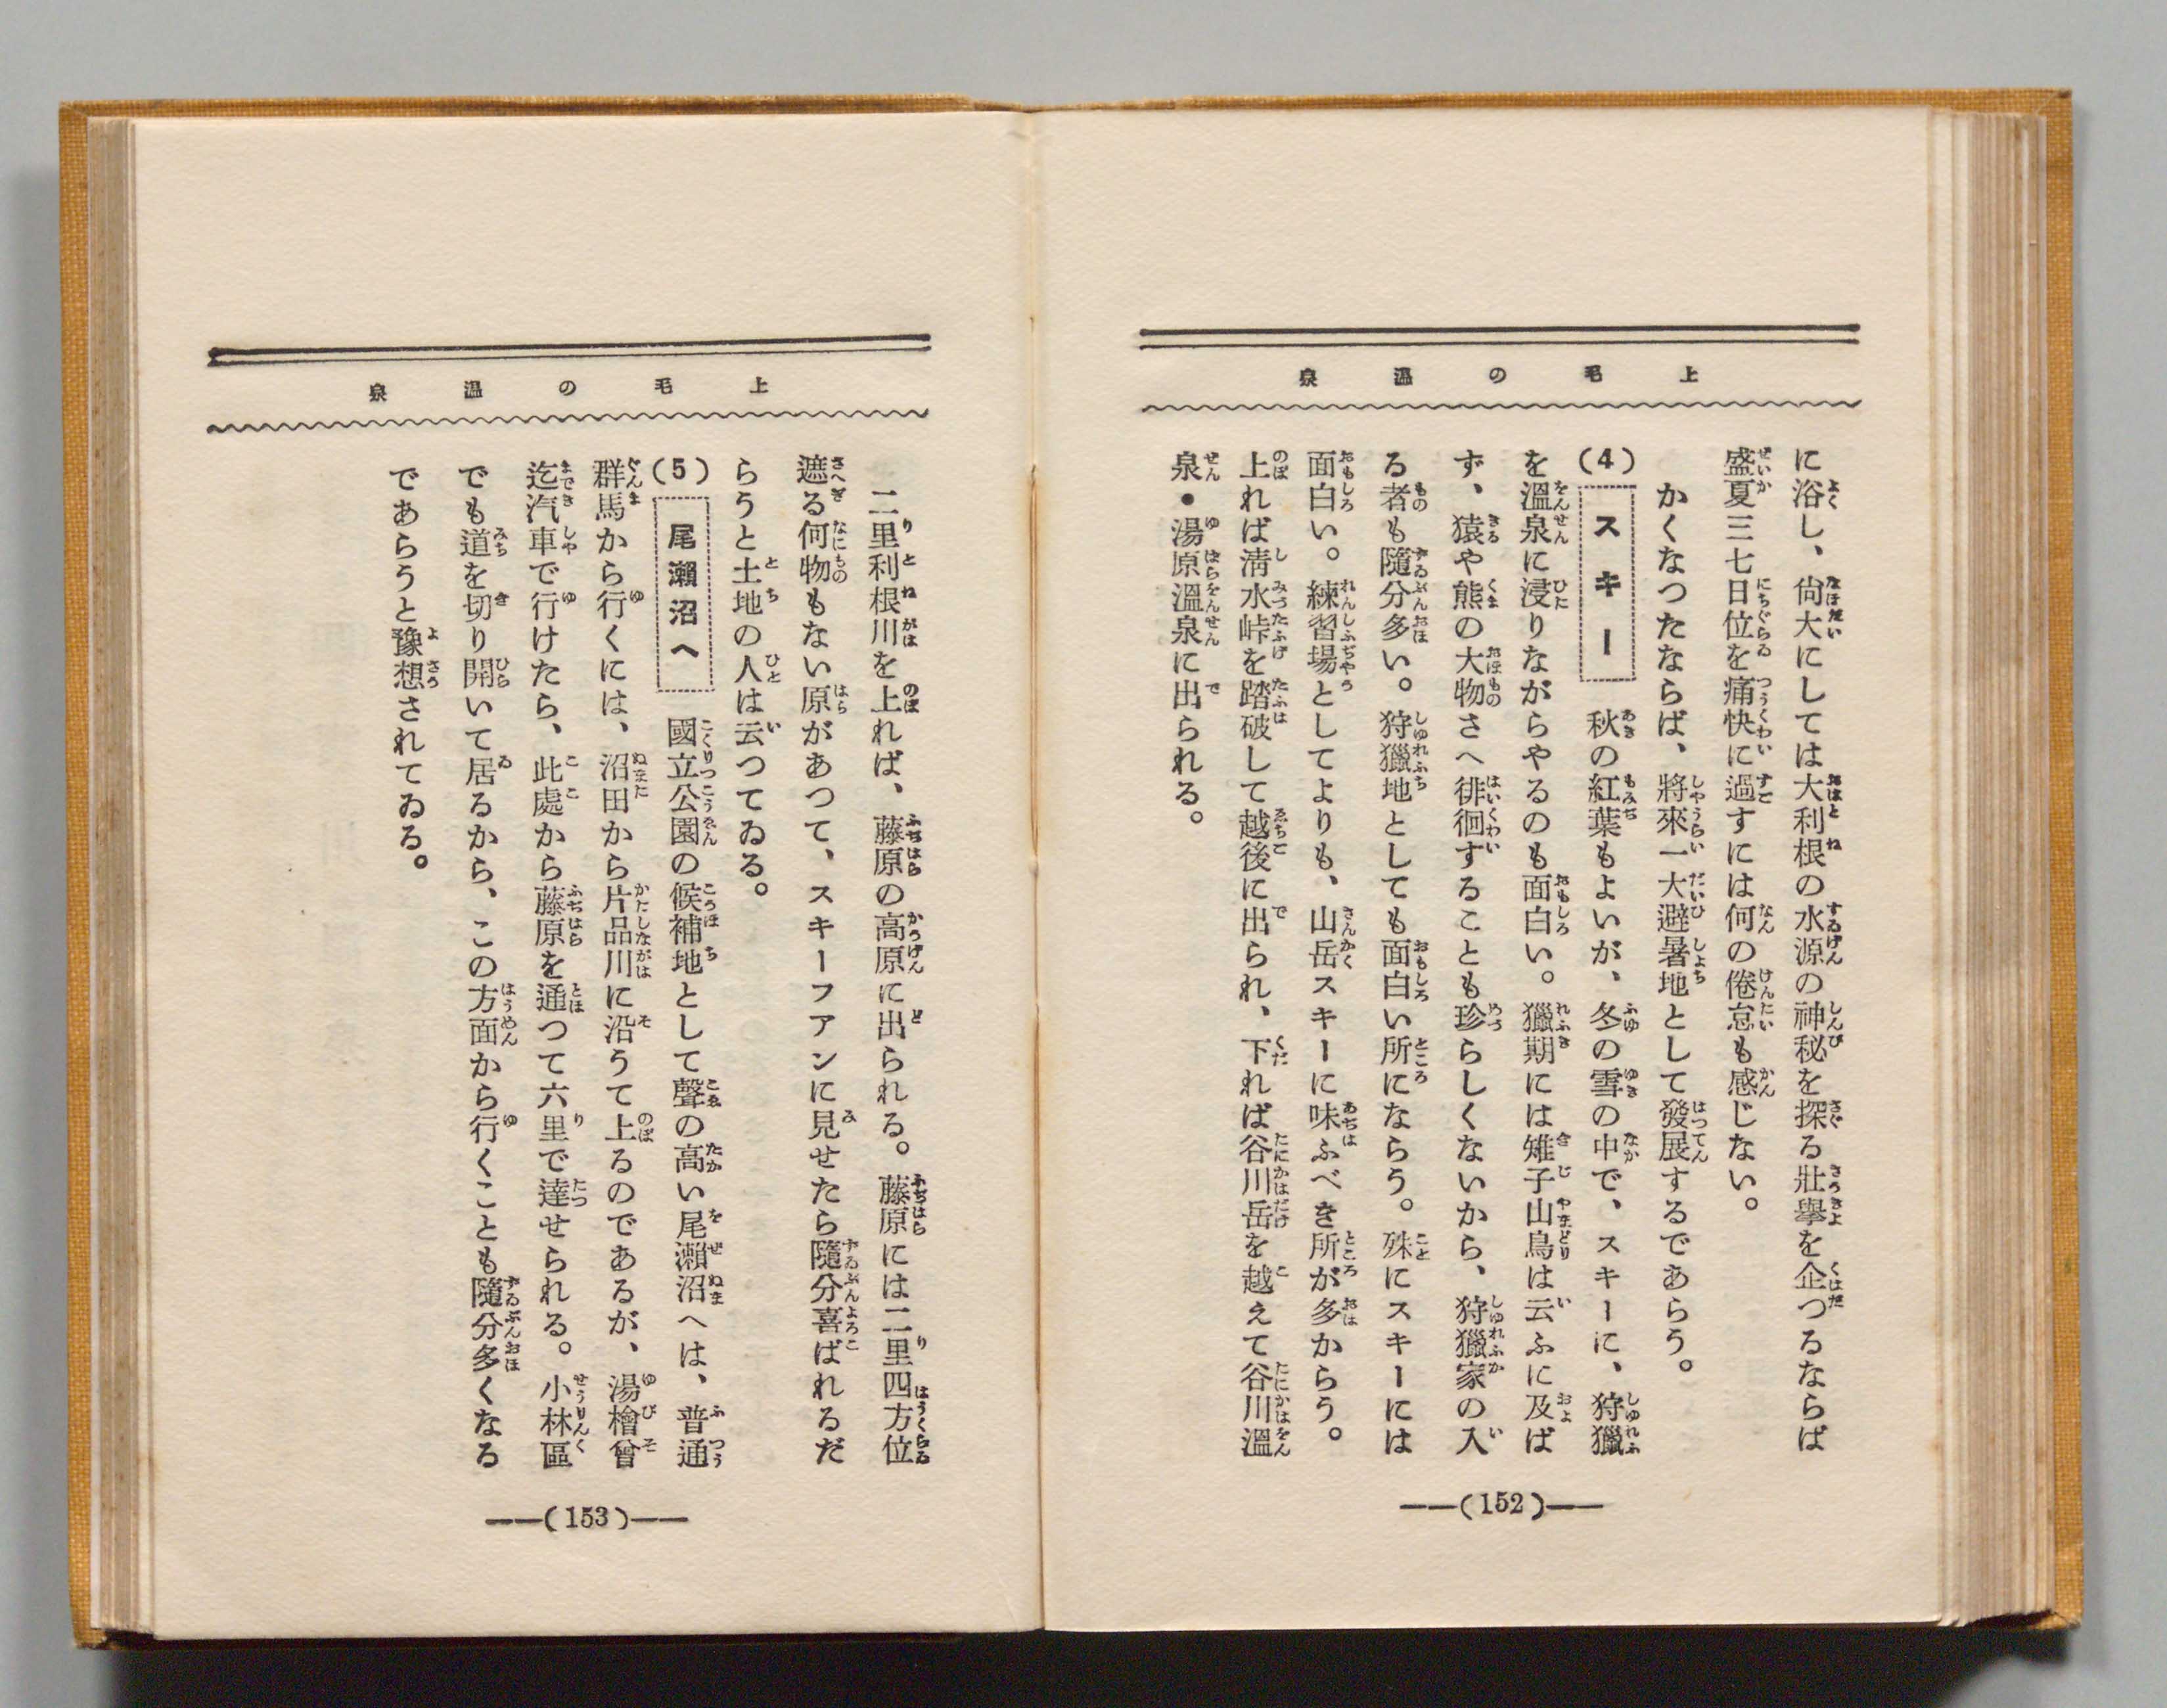 上毛の溫泉
に浴し、尙大にしては大利根の水源の神秘を探る壯擧を企つるならば
盛夏三七日位を痛快に過すには何の倦怠も感じない。
かくなつたならば、將來一大避暑地として發展するであらう。
(4) スキー 秋の紅葉もよいが、冬の雪の中で、スキーに、狩獵
を溫泉に浸りながらやるのも面白い。獵期には雉子山鳥は云ふに及ば
ず、猿や熊の大物さへ徘徊することも珍らしくないから、狩獵家の入
る者も隨分多い。狩獵地としても面白い所にならう。殊にスキーには
面白い。練習場としてよりも、山岳スキーに味ふべき所が多からう。
上れば淸水峠を踏破して越後に出られ、下れば谷川岳を越えて谷川溫
泉・湯原溫泉に出られる。
(152)
上毛の溫泉
二里利根川を上れば、藤原の高原に出られる。藤原には二里四方位
遮る何物もない原があつて、スキーフアンに見せたら隨分喜ばれるだ
らうと土地の人は云つてゐる。
(5) 尾瀨沼へ 國立公園の候補地として聲の高い尾瀨沼へは、普通
群馬から行くには、沼田から片品川に沿うて上るのであるが、湯檜曾
迄汽車で行けたら、此處から藤原を通つて六里で達せられる。小林區
でも道を切り開いて居るから、この方面から行くことも隨分多くなる
であらうと豫想されてゐる。
(153)